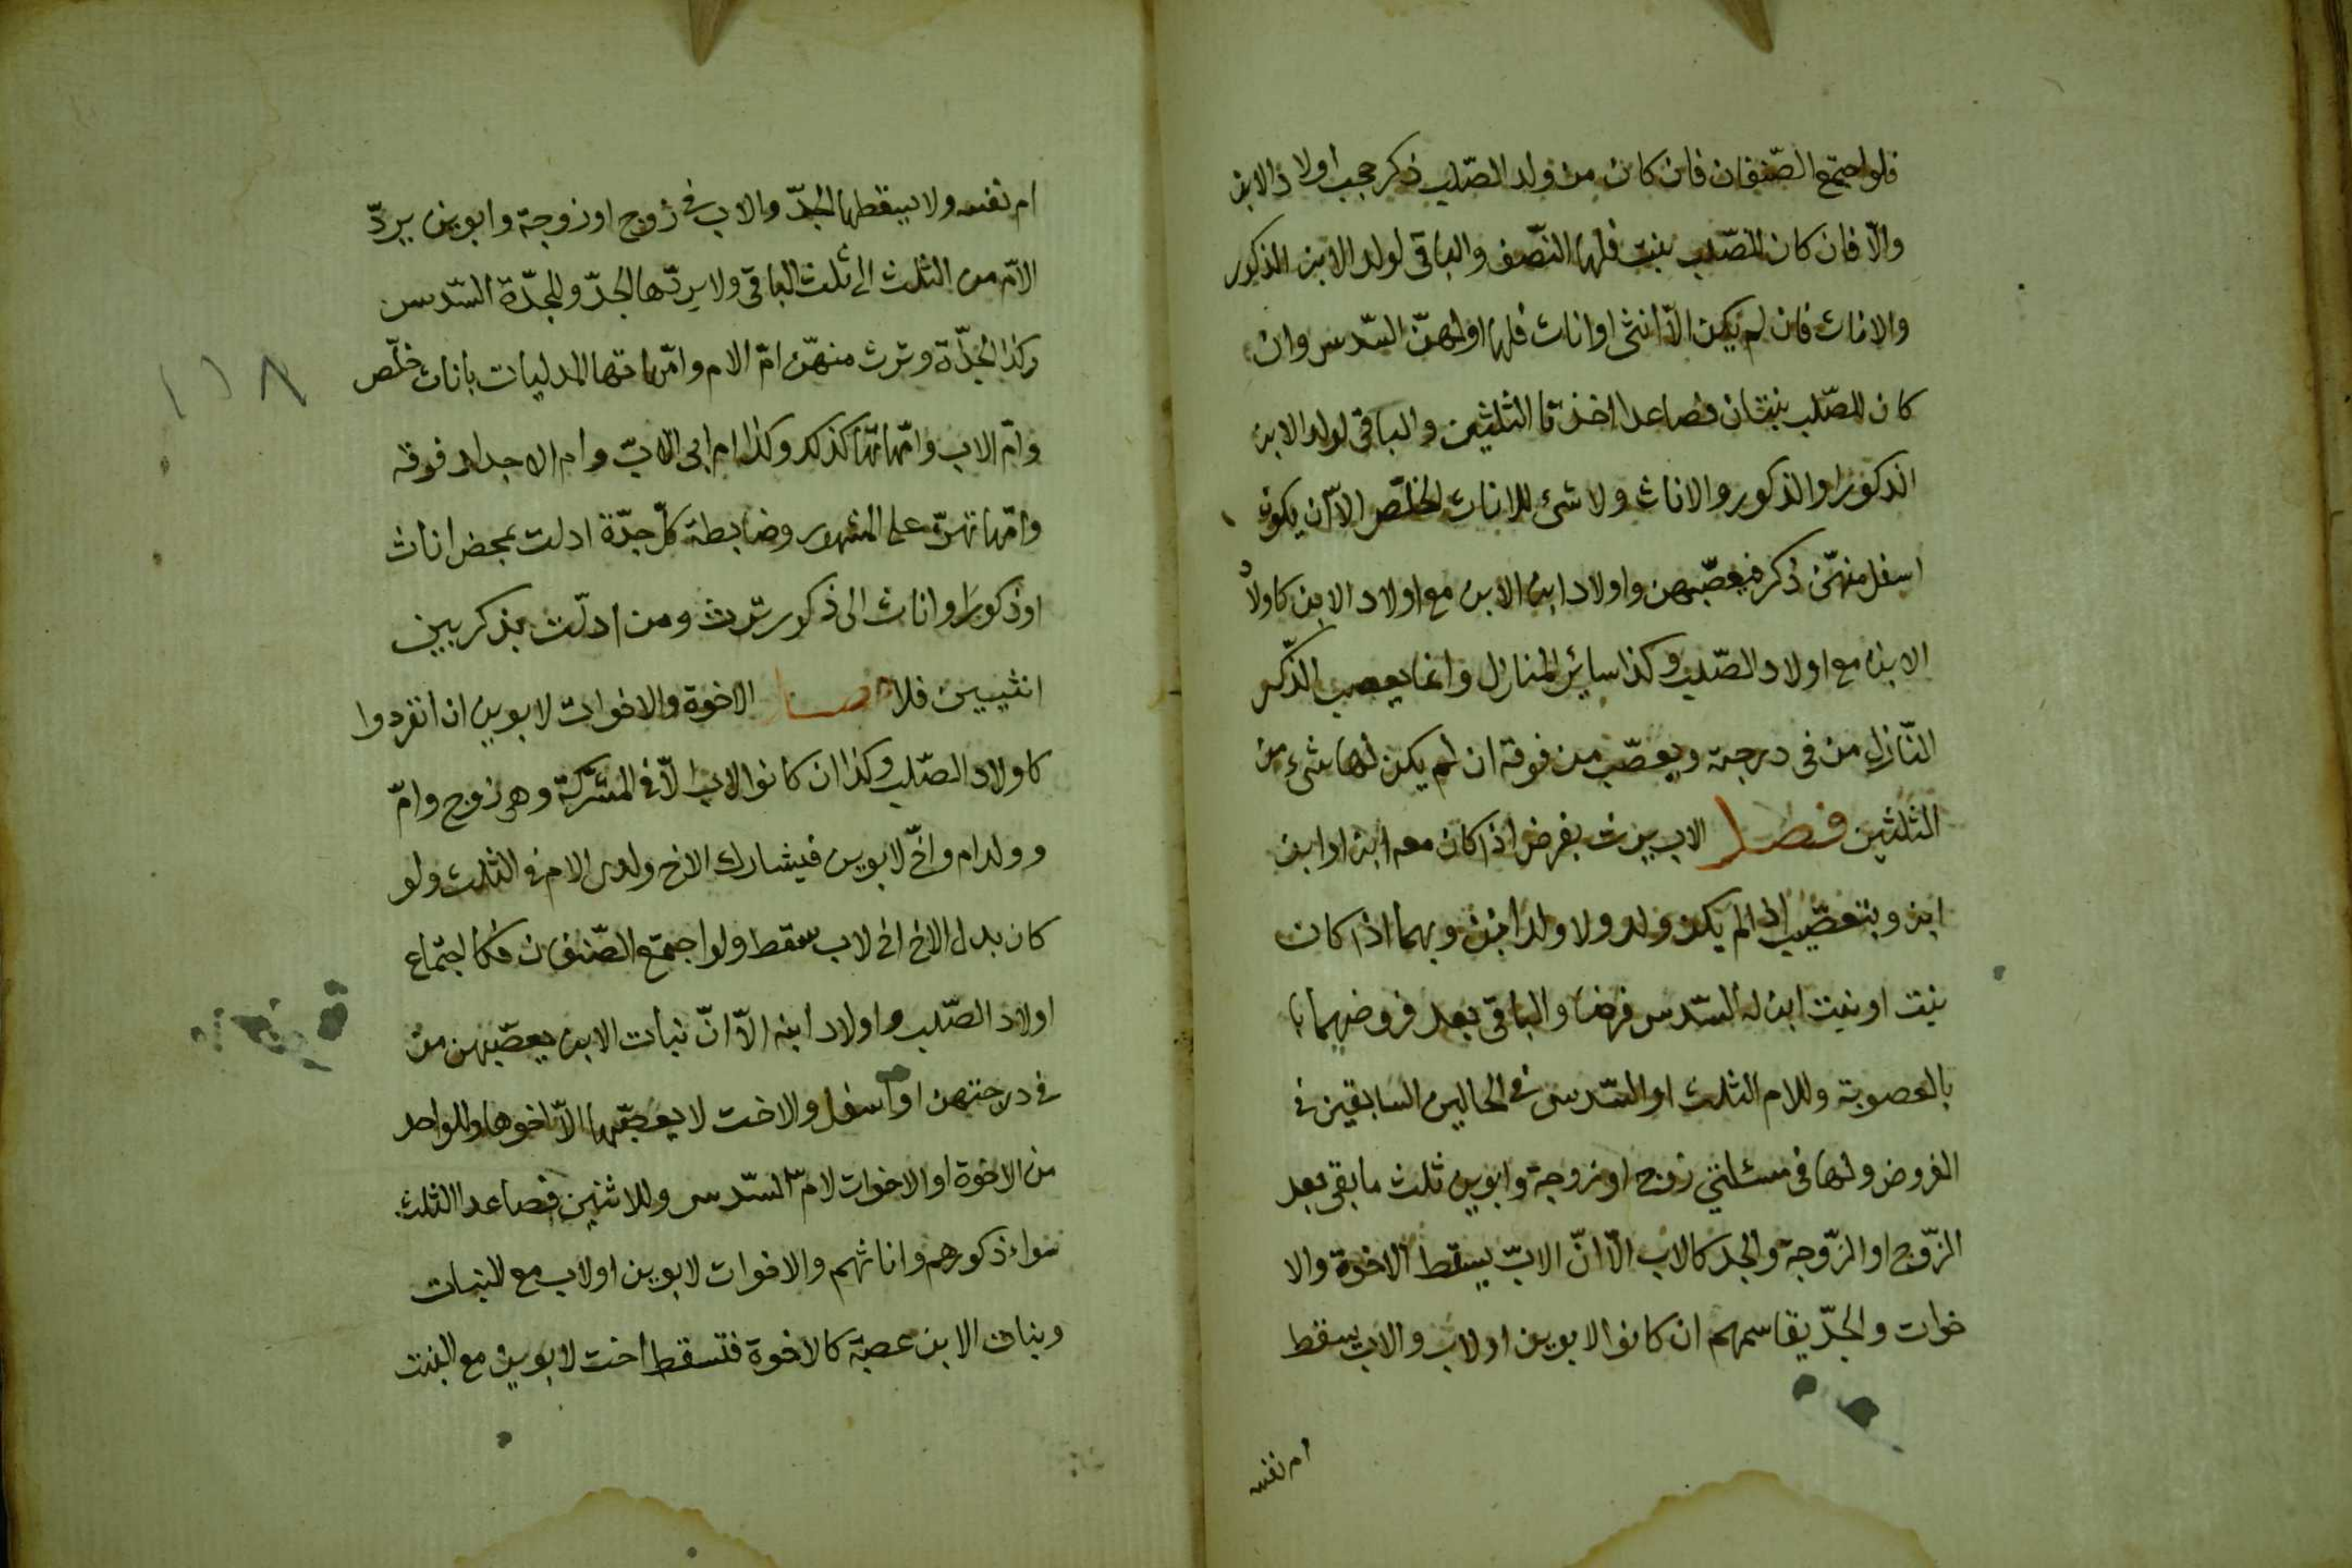 فلو اجتمع الصّنفان فان كان من ولد الصّلب ذكر حجب اولاد الابن
والّا فان كان للصّلب بنت فلها النّصف والباقى لولد الابن الذكور
والاناث فان لم يكن الّا انثى او اناث فلها او لهنّ السّدس وان
كان للصّلب بنتان فصاعدا اخذتا الثلثين والباقى لولد الابن
الذكور او الذكور والاناث ولا شئ للاناث الخلّص الّا ان يكون
اسفل منهنّ ذكر فيعصّبهن واولاد ابن الابن مع اولاد الابن كاولاد
الابن مع اولاد الصّلب وكذا ساير المنازل وانما يعصب الذّكر
النّازل من فى درجته ويعصّب من فوقه ان لم يكن لها شئ من
الثلثين فصل الاب يرث بفرض اذا كان معه ابن او ابن
ابن وبتعصيب اذا لم يكن ولد ولا ولد ابن وبهما اذا كان
بنت او بنت ابن له السّدس فرضا والباقى بعد فروضهما
بالعصوبة وللام الثلث او السّدس فى الحالين السابقين فى
الفروض ولها فى مسئلتى زوج او زوجة وابوين ثلث ما بقى بعد
الزّوج او الزّوجة والجد كالاب الّا انّ الاب يسقط الاخوة والا
خوات والجدّ يقاسمهم ان كانوا لابوين او لاب والاب يسقط
ام نفسه
ام نفسه ولا يسقطها الجدّ والاب فى زوج او زوجة وابوين يردّ
الامّ من الثلث الى ثلث الباقى ولا يردّها الجدّ وللجدّة السّدس
وكذا الجدّة وترث منهنّ امّ الام وامّهاتها المدليات باناث خلّص
وامّ الاب وامّهاتها كذلك وكذا ام ابى الاب وام الاجداد فوقه
وامّهاتهنّ على المشهور وضابطه كلّ جدّة ادلت بمحض اناث
او ذكور او اناث الى ذكور ترث ومن ادلت بذكر بين
انثيين فلا فصل الاخوة والاخوات لابوين ان انفردوا
كاولاد الصّلب وكذا ان كانوا لاب الّا فى المشرّكة وهى زوج وامّ
وولد ام واخ لابوين فيشارك الاخ ولدى الام فى الثلث ولو
كان بدل الاخ اخ لاب سقط ولو اجتمع الصّنفان فكاجتماع
اولاد الصّلب واولاد ابنه الّا انّ بنات الابن يعصّبهن من
فى درجتهن او اسفل والاخت لا يعصّبها الّا اخوها وللواحد
من الاخوة او الاخوات لامّ السّدس وللاثنين فصاعدا الثلث
سواء ذكورهم واناثهم والاخوات لابوين او لاب مع البنات
وبنات الابن عصبة كالاخوة فتسقط اخت لابوين مع البنت
١١٨